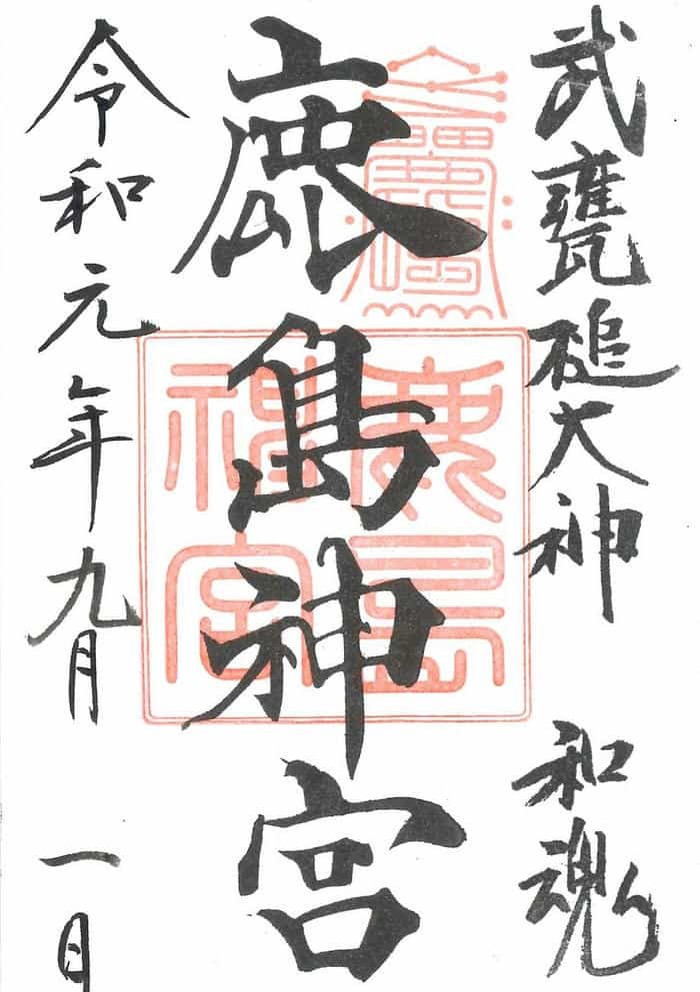 武甕槌大神 和魂
鹿島神宮
鹿島神宮
令和元年九月 一日